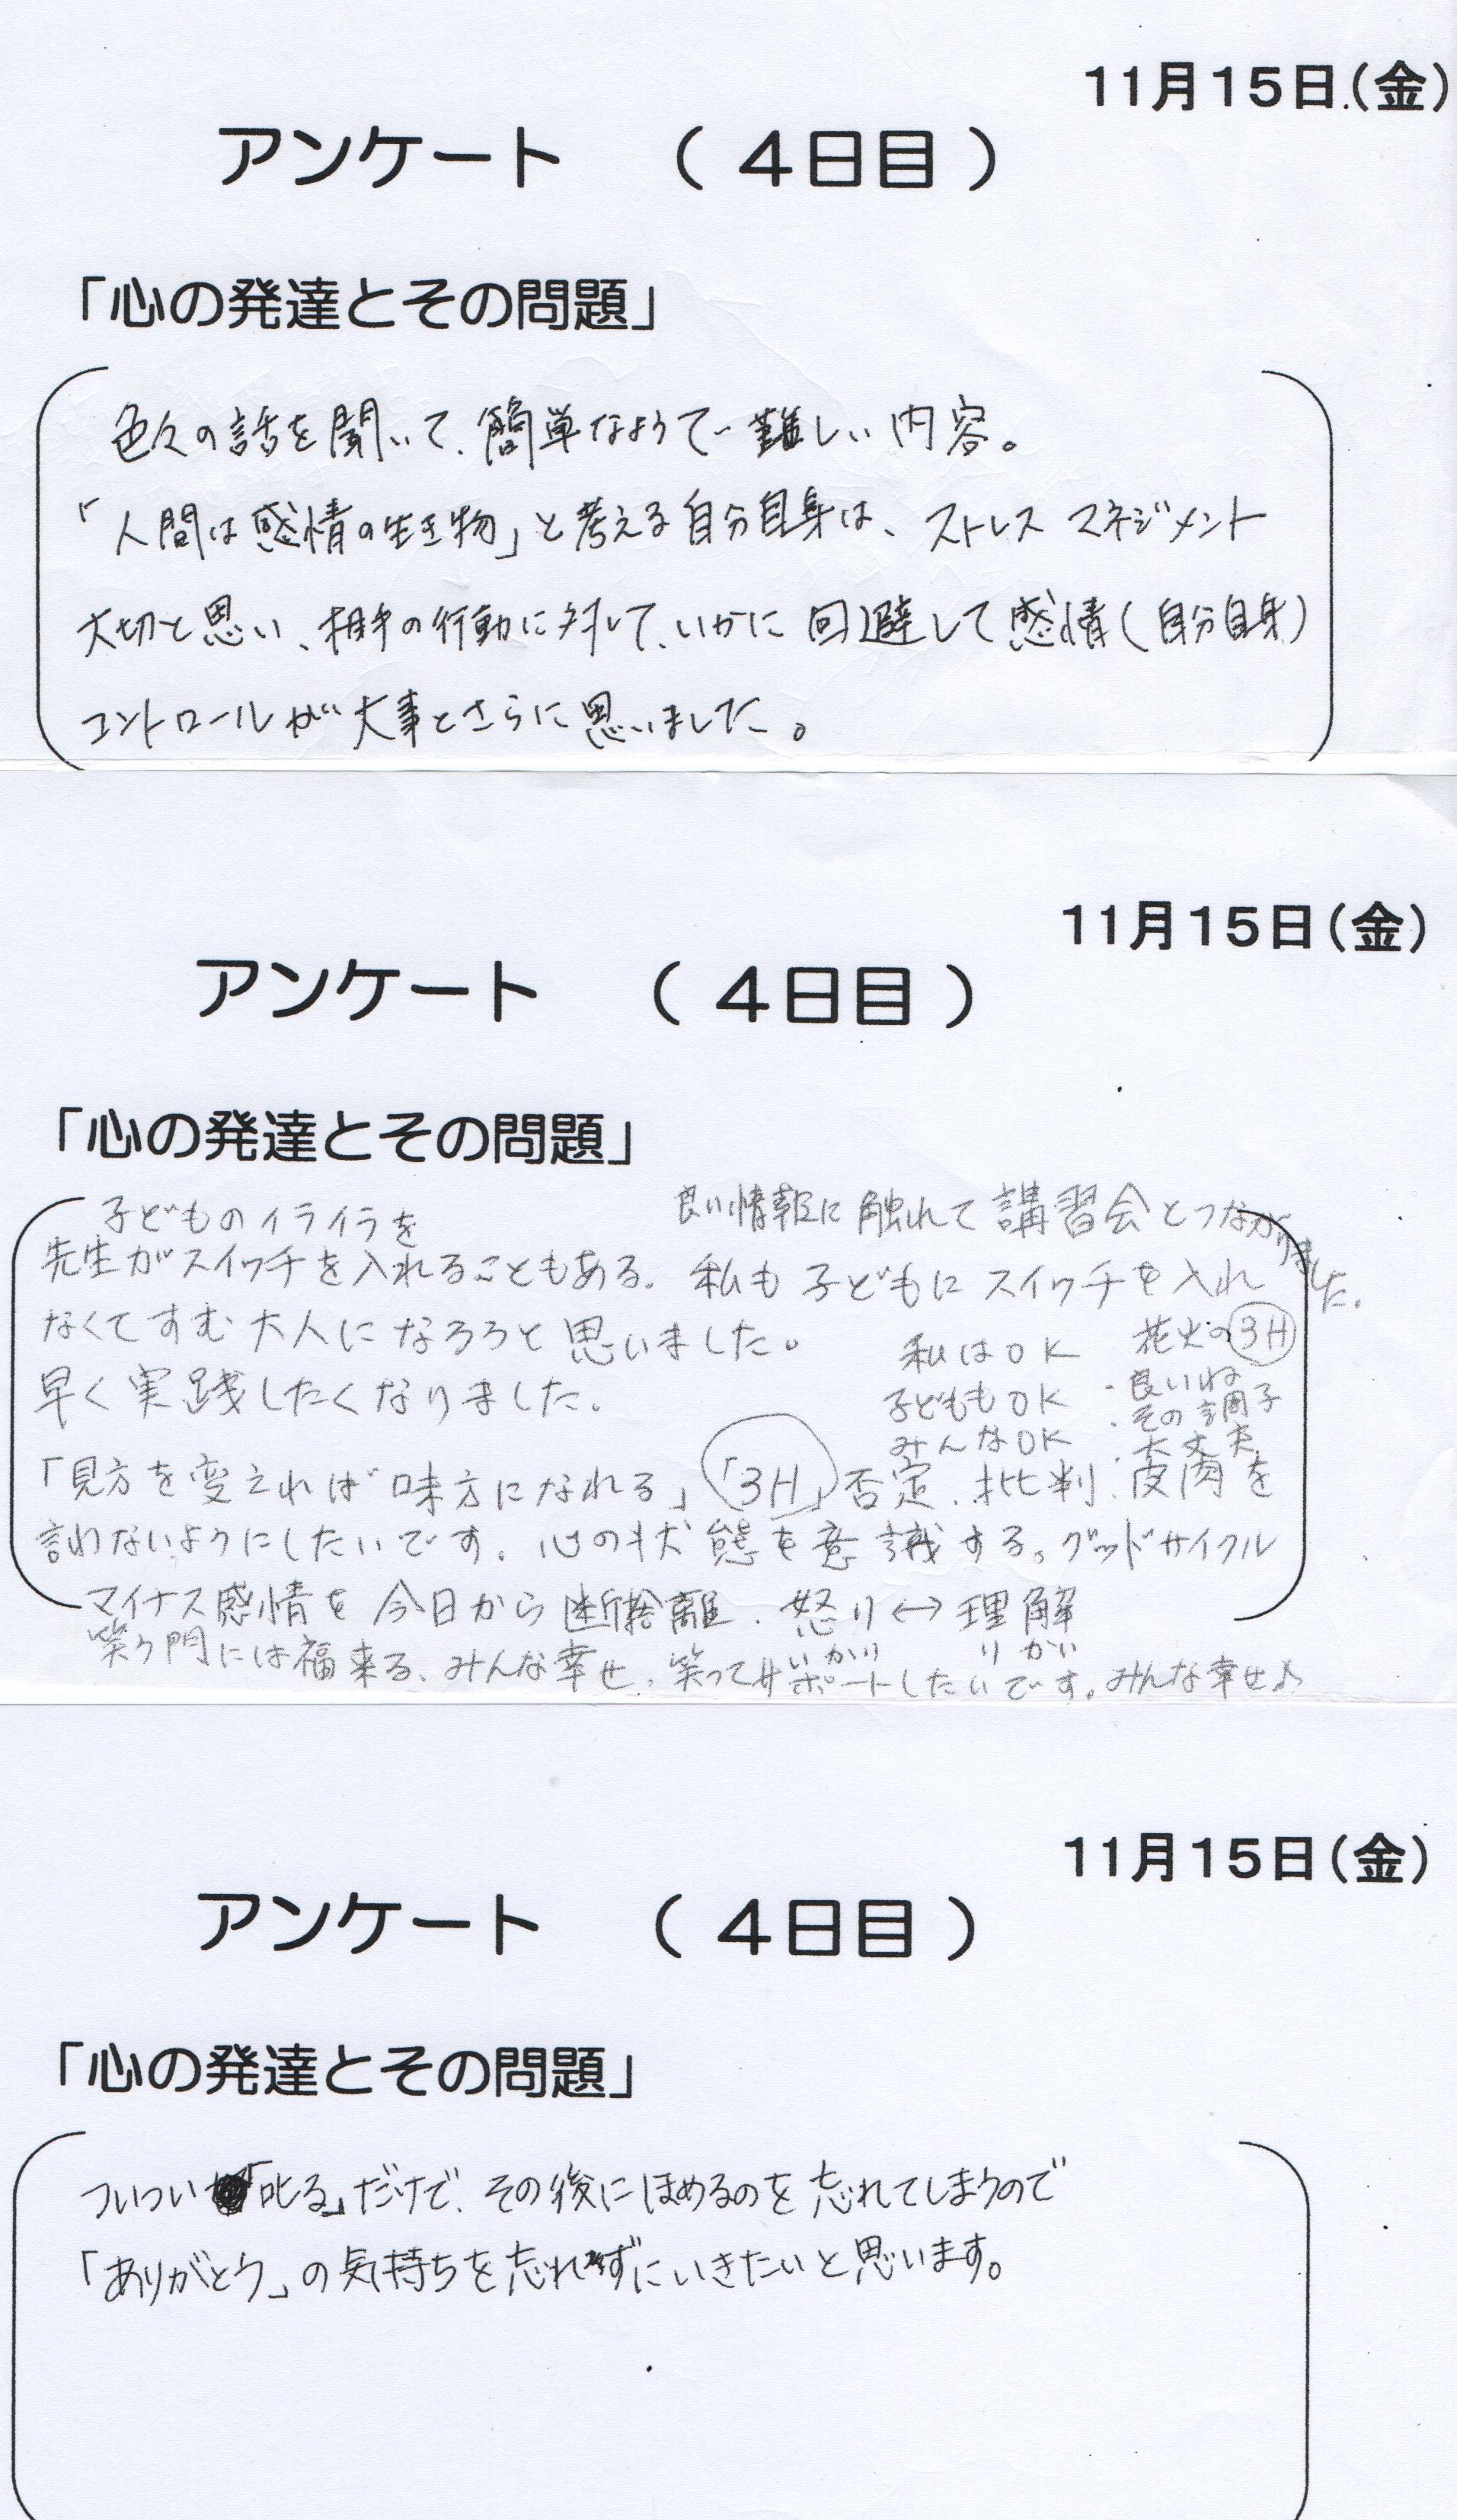 11月15日(金)
アンケート (4日目)
「心の発達とその問題」
色々の話を聞いて、簡単なようで難しい内容。
「人間は感情の生き物」と考える自分自身は、ストレスマネジメント
大切と思い、相手の行動に対して、いかに回避して感情(自分自身)
コントロールが大事とさらに思いました。
11月15日(金)
アンケート (4日目)
「心の発達とその問題」
良い情報に触れて講習会とつながりました。
子どものイライラを
先生がスイッチを入れることもある。私も子どもにスイッチを入れ
なくてすむ大人になろうと思いました。
早く実践したくなりました。
私はOK
子どももOK
みんなOK
花火の3H
・良いね
・その調子
・大丈夫
「見方を変えれば味方になれる」「3H」否定、批判、皮肉を
言わないようにしたいです。心の状態を意識する。グッドサイクル
マイナス感情を今日から断捨離。怒り↔理解
いかり りかい
笑う門には福来る、みんな幸せ、笑ってサポートしたいです。みんな幸せ♪
11月15日(金)
アンケート (4日目)
「心の発達とその問題」
ついつい「叱る」だけで、その後にほめるのを忘れてしまうので
「ありがとう」の気持ちを忘れずにいきたいと思います。